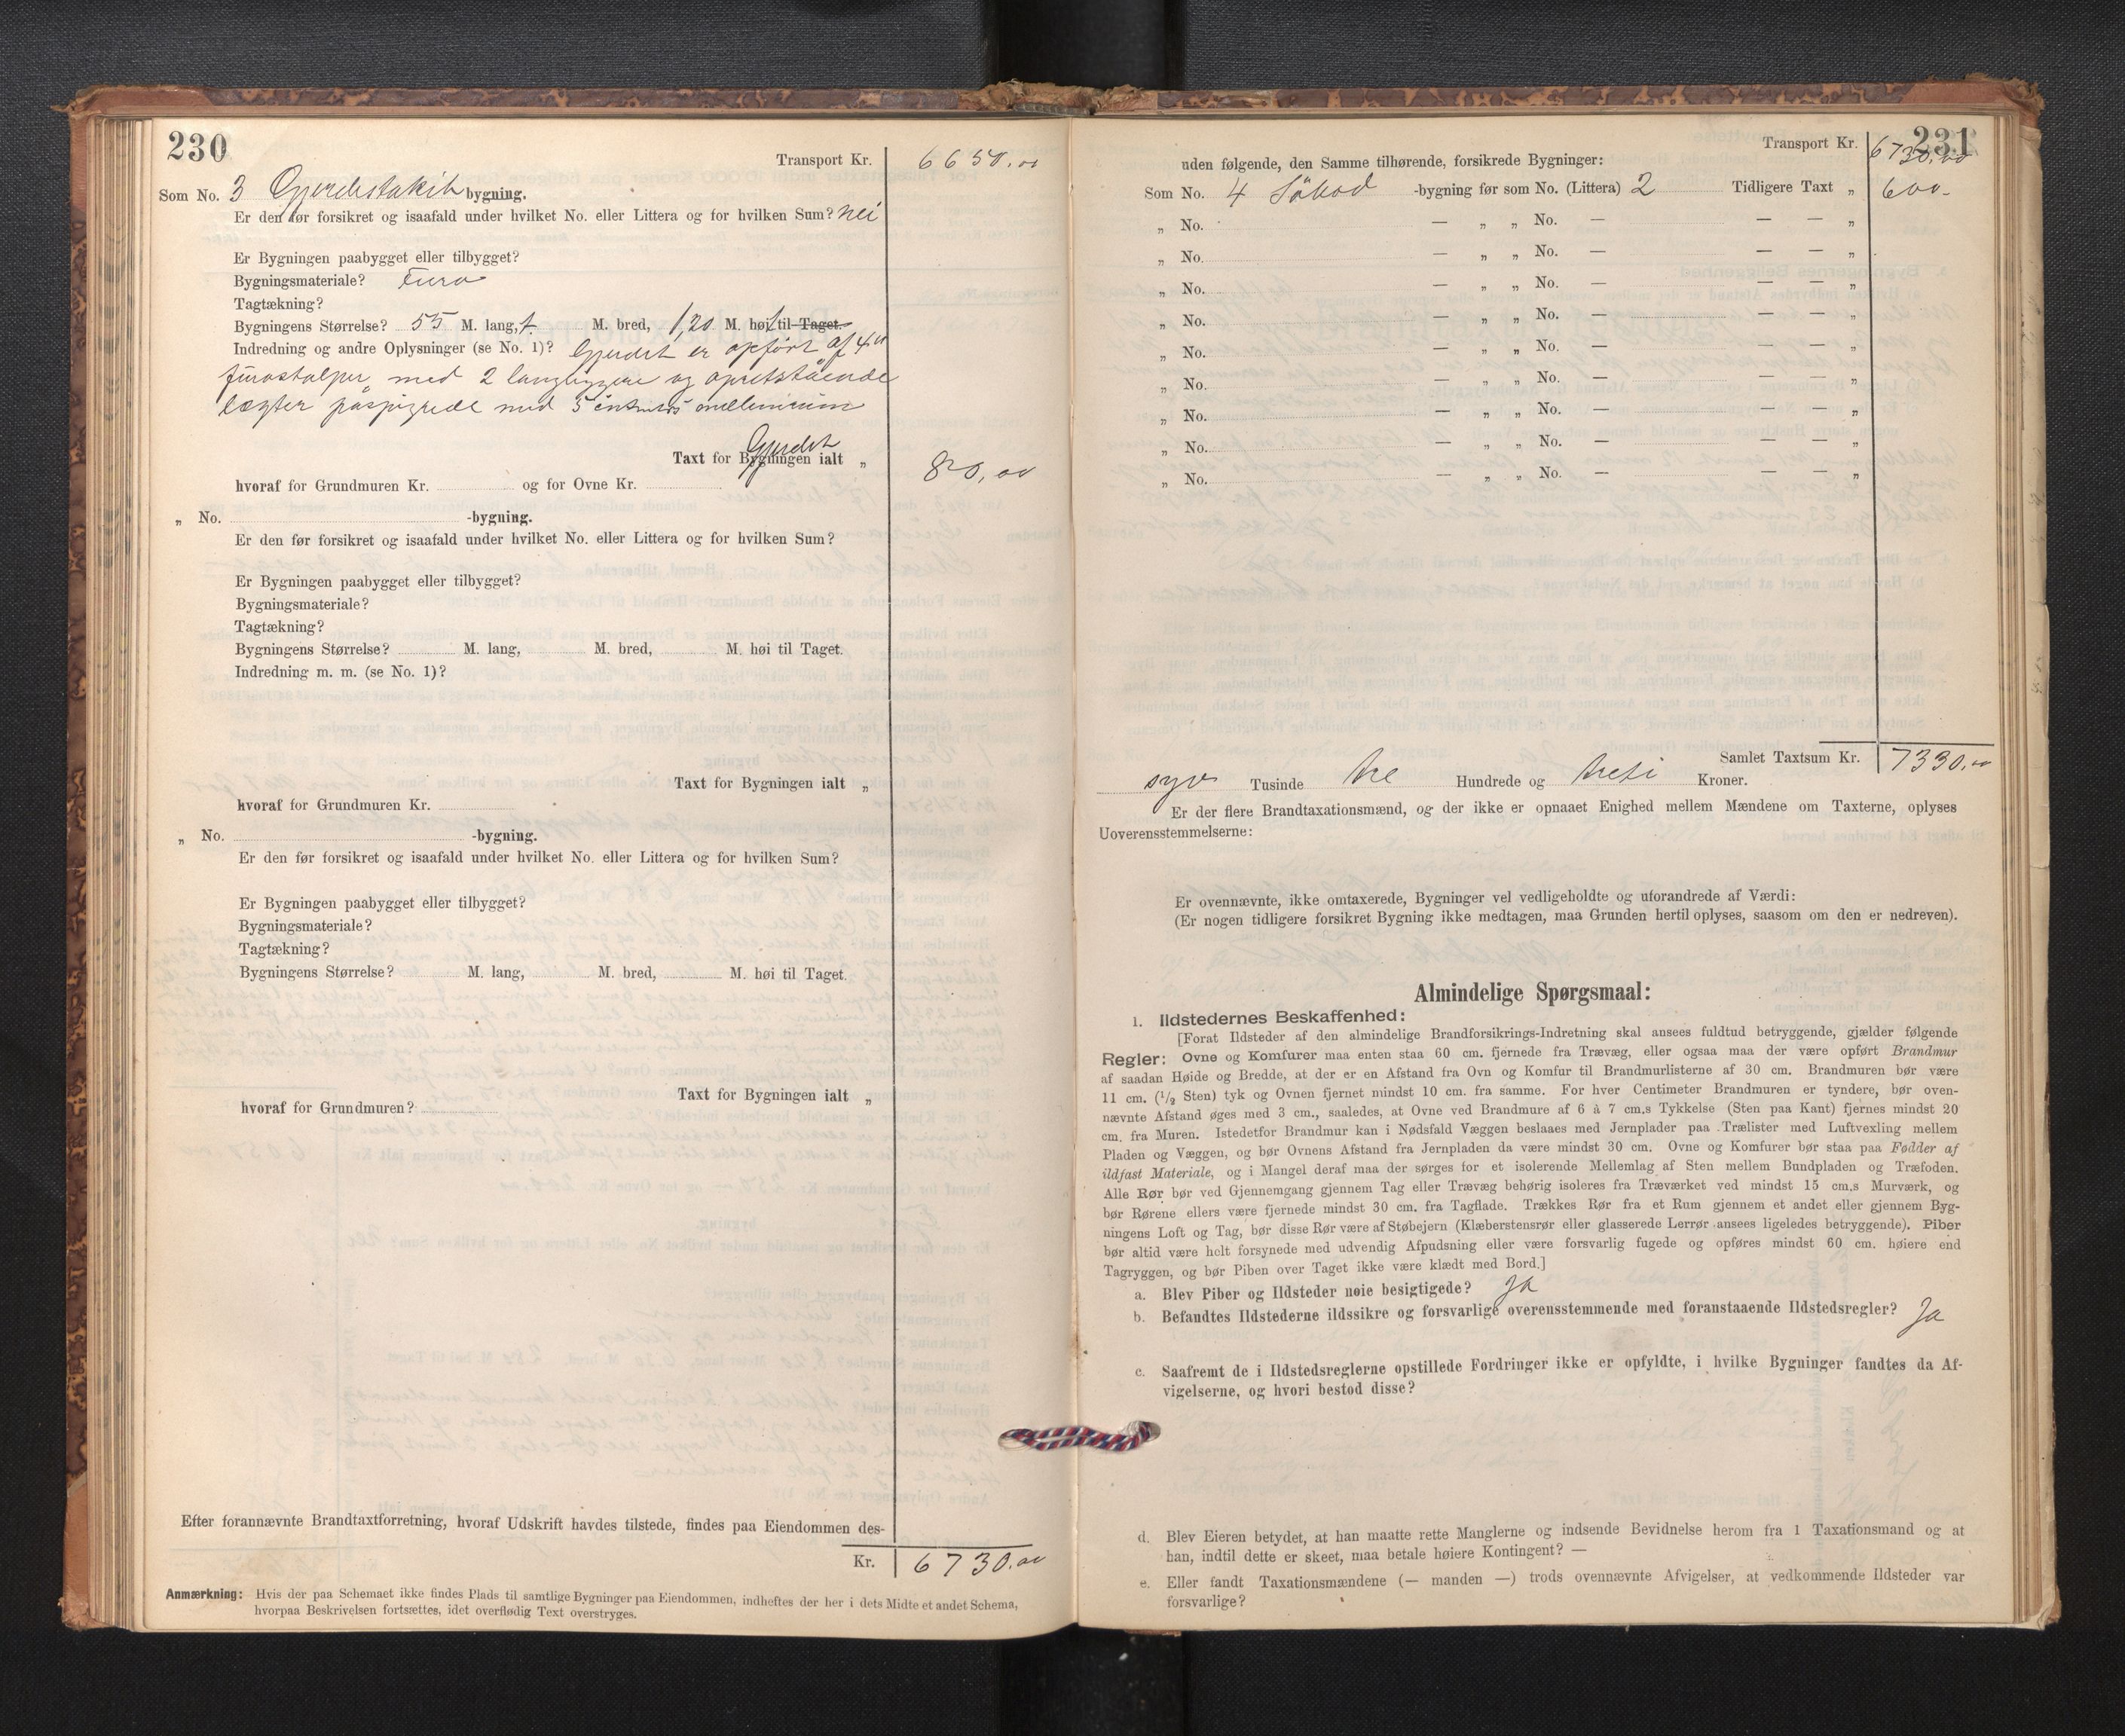 230
Transport Kr. 6650.00
Som No. 3 Gjerdestakit bygning.
Er den før forsikret og isaafald under hvilket No. eller Littera og for hvilken Sum? nei
Er Bygningen paabygget eller tilbygget?
Bygningsmateriale? Furu
Tagtækning?
Bygningens Størrelse? 55 M. lang, M. bred, 1,20 M. høit til Taget.
Indredning og andre Oplysninger (se No. 1)? Gjerdet er opført af 4"
furustolper, med 2 langliggere og opretstående
lægter påspigrede med 5 mellemrum
Taxt for Bygningen Gjerdet ialt „ 80,00
hvoraf for Grundmuren Kr. og for Ovne Kr.
„ No. -bygning.
Er den før forsikret og isaafald under hvilket No. eller Littera og for hvilken Sum?
Er Bygningen paabygget eller tilbygget?
Bygningsmateriale?
Tagtækning?
Bygningens Størrelse? M. lang, M. bred, M. høi til Taget.
Indredning m. m. (se No. 1)?
Taxt for Bygningen ialt „
hvoraf for Grundmuren Kr.
„ No. -bygning.
Er den før forsikret og isaafald under hvilket No. eller Littera og for hvilken Sum?
Er Bygningen paabygget eller tilbygget?
Bygningsmateriale?
Tagtækning?
Bygningens Størrelse? M. lang, M. bred, M. høi til Taget.
Taxt for Bygningen ialt „
hvoraf for Grundmuren?
Efter forannævnte Brandtaxtforretning, hvoraf Udskrift havdes tilstede, findes paa Eiendommen des-
Kr. 6730.00
Anmærkning: Hvis der paa Schemaet ikke findes Plads til samtlige Bygninger paa Eiendommen, indheftes der her i dets Midte et andet Schema,
hvorpaa Beskrivelsen fortsættes, idet overflødig Text overstryges.
231
Transport Kr. 6730.00
uden følgende, den Samme tilhørende, forsikrede Bygninger:
Som No. 4 Søbod -bygning før som No. (Littera) 2 Tidligere Taxt „ 600-
„ No. — „ „ No. — — — „
„ No. — „ „ No. — — — „
„ No. — „ „ No. — — — „
„ No. — „ „ No. — — — „
„ No. — „ „ No. — — — „
„ No. — „ „ No. — — — „
„ No. — „ „ No. — — — „
„ No. — „ „ No. — — — „
„ No. — „ „ No. — — — „
Samlet Taxtsum Kr. 7330.00
syv Tusinde tre Hundrede og treti Kroner.
Er der flere Brandtaxationsmænd, og der ikke er opnaaet Enighed mellem Mændene om Taxterne, oplyses
Uoverensstemmelserne:
Er ovennævnte, ikke omtaxerede, Bygninger vel vedligeholdte og uforandrede af Værdi:
(Er nogen tidligere forsikret Bygning ikke medtagen, maa Grunden hertil oplyses, saasom om den er nedreven).
Almindelige Spørgsmaal:
1. Ildstedernes Beskaffenhed:
[Forat Ildsteder af den almindelige Brandforsikrings-Indretning skal ansees fuldtud betryggende, gjælder følgende
Regler: Ovne og Komfurer maa enten staa 60 cm. fjernede fra Trævæg, eller ogsaa maa der være opført Brandmur
af saadan Høide og Bredde, at der er en Afstand fra Ovn og Komfur til Brandmurlisterne af 30 cm. Brandmuren bør være
11 cm. (1/2 Sten) tyk og Ovnen fjernet mindst 10 cm. fra samme. For hver Centimeter Brandmuren er tyndere, bør oven-
nævnte Afstand øges med 3 cm., saaledes, at Ovne ved Brandmure af 6 à 7 cm.s Tykkelse (Sten paa Kant) fjernes mindst 20
cm. fra Muren. Istedetfor Brandmur kan i Nødsfald Væggen beslaaes med Jernplader paa Trælister med Luftvexling mellem
Pladen og Væggen, og bør Ovnens Afstand fra Jernpladen da være mindst 30 cm. Ovne og Komfurer bør staa paa Fødder af
ildfast Materiale, og i Mangel deraf maa der sørges for et isolerende Mellemlag af Sten mellem Bundpladen og Træfoden.
Alle Rør bør ved Gjennemgang gjennem Tag eller Trævæg behørig isoleres fra Træværket ved mindst 15 cm.s Murværk, og
bør Rørene ellers være fjernede mindst 30 cm. fra Tagflade. Trækkes Rør fra et Rum gjennem et andet eller gjennem Byg-
ningens Loft og Tag, bør disse Rør være af Støbejern (Klæberstensrør eller glasserede Lerrør ansees ligeledes betryggende). Piber
bør altid være helt forsynede med udvendig Afpudsning eller være forsvarlig fugede og opføres mindst 60 cm. høiere end
Tagryggen, og bør Piben over Taget ikke være klædt med Bord.]
a. Blev Piber og Ildsteder nøie besigtigede? Ja
b. Befandtes Ildstederne ildssikre og forsvarlige overensstemmende med foranstaaende Ildstedsregler? Ja
c. Saafremt de i Ildstedsreglerne opstillede Fordringer ikke er opfyldte, i hvilke Bygninger fandtes da Af-
vigelserne, og hvori bestod disse?
d. Blev Eieren betydet, at han maatte rette Manglerne og indsende Bevidnelse herom fra 1 Taxationsmand og at
han, indtil dette er skeet, maa betale høiere Kontingent? —
e. Eller fandt Taxationsmændene (— manden —) trods ovennævnte Afvigelser, at vedkommende Ildsteder var
forsvarlige?